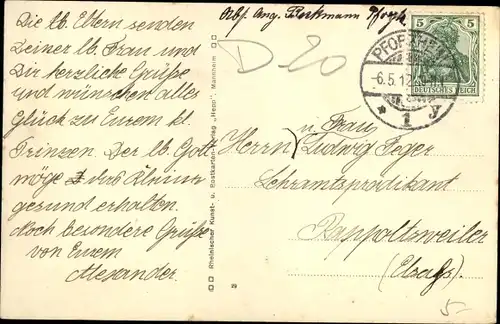 Die lb. Eltern senden
Deiner lb. Frau und
Dir herzliche Grüße
und wünschen alles
Glück zu Eurem kl.
Prinzen. Der lb. Gott
möge das Kleine
gesund erhalten.
Noch besondere Grüße
von Eurem
Alexander.
Abs. Aug. Beckmann Pforzh.
D-20
5 5
DEUTSCHES REICH
PFORZHEIM
6.5.1
* 1 y
Rheinischer Kunst- u. Postkarten-Verlag „Hepp“, Mannheim
u. Frau
Herrn Ludwig Jeger
Lehramtspraktikant
Rappoltsweiler
(Elsaß).
5-